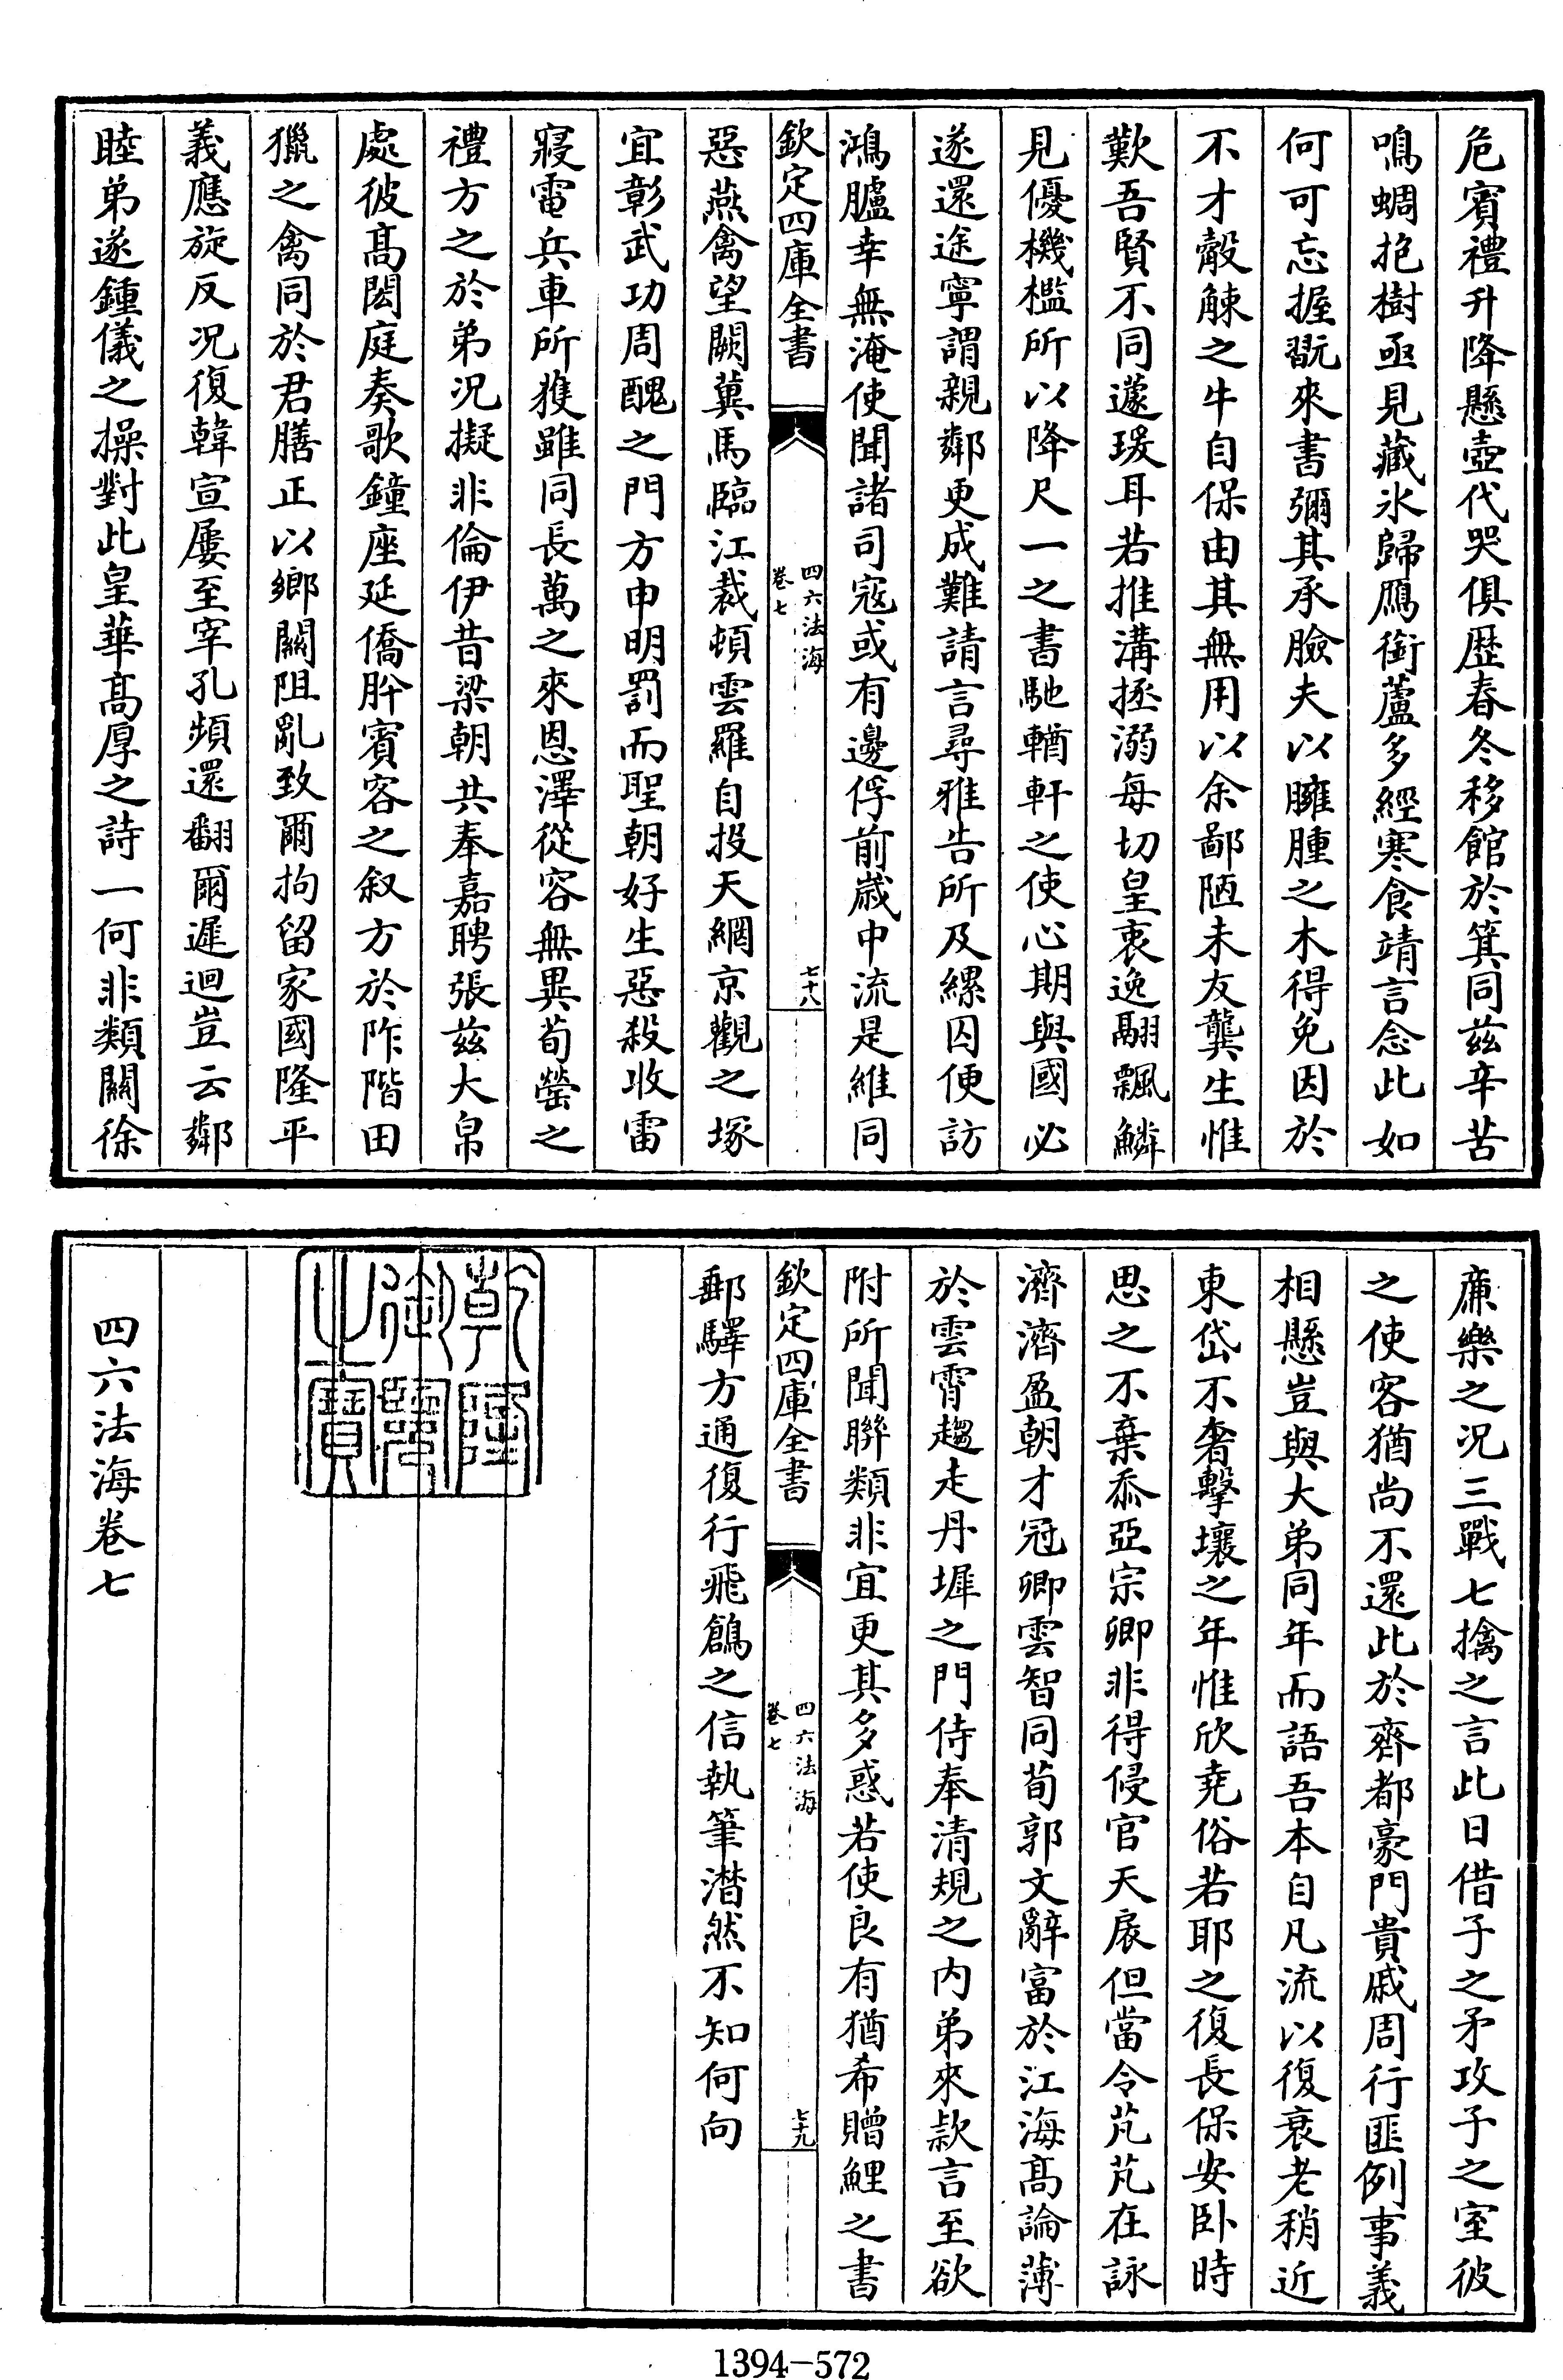 危賓禮升降懸壺代哭俱歴春冬移館於箕同兹辛苦
鳴蜩抱樹亟見藏氷歸鴈銜蘆多經寒食靖言念此如
何可忘握翫來書彌其承臉夫以臃腫之木得免因於
不才觳觫之牛自保由其無用以余鄙陋未友龔生惟
歎吾賢不同蘧瑗耳若推溝拯溺每切皇衷逸翮飄鱗
見優機檻所以降尺一之書馳輶軒之使心期與國必
遂還途寧謂親鄰更成難請言尋雅告所及縲囚便訪
鴻臚幸無淹使聞諸司寇或有邊俘前嵗中流是維同
欽定四庫全書
四六法海
卷七
七十八
惡燕禽望闕冀馬臨江裁頓雲羅自投天網京觀之塚
宜彰武功周醜之門方申明罰而聖朝好生惡殺收雷
寢電兵車所獲雖同長萬之來恩澤從容無異荀罃之
禮方之於弟况擬非倫伊昔梁朝共奉嘉聘張兹大帛
處彼髙閎庭奏歌鐘座延僑肸賓客之叙方於阼階田
獵之禽同於君膳正以鄉關阻亂致爾拘留家國隆平
義應旋反况復韓宣屢至宰孔頻還翻爾遲迴豈云鄰
睦弟遂鍾儀之操對此皇華髙厚之詩一何非類關徐
廉樂之况三戰七擒之言此日借子之矛攻子之室彼
之使客猶尚不還此於齊都豪門貴戚周行匪例事義
相懸豈與大弟同年而語吾本自凡流以復衰老稍近
東岱不奢擊壤之年惟欣堯俗若耶之復長保安卧時
思之不棄忝亞宗卿非得侵官天扆但當令芃芃在詠
濟濟盈朝才冠卿雲智同荀郭文辭富於江海髙論薄
於雲霄趨走丹墀之門侍奉清規之内弟來款言至欲
附所聞聨類非宜更其多惑若使良有猶希贈鯉之書
欽定四庫全書
四六法海
卷七
七十九
郵驛方通復行飛鷁之信執筆潸然不知何向
乾隆御覽之寶
四六法海卷七
1394-572